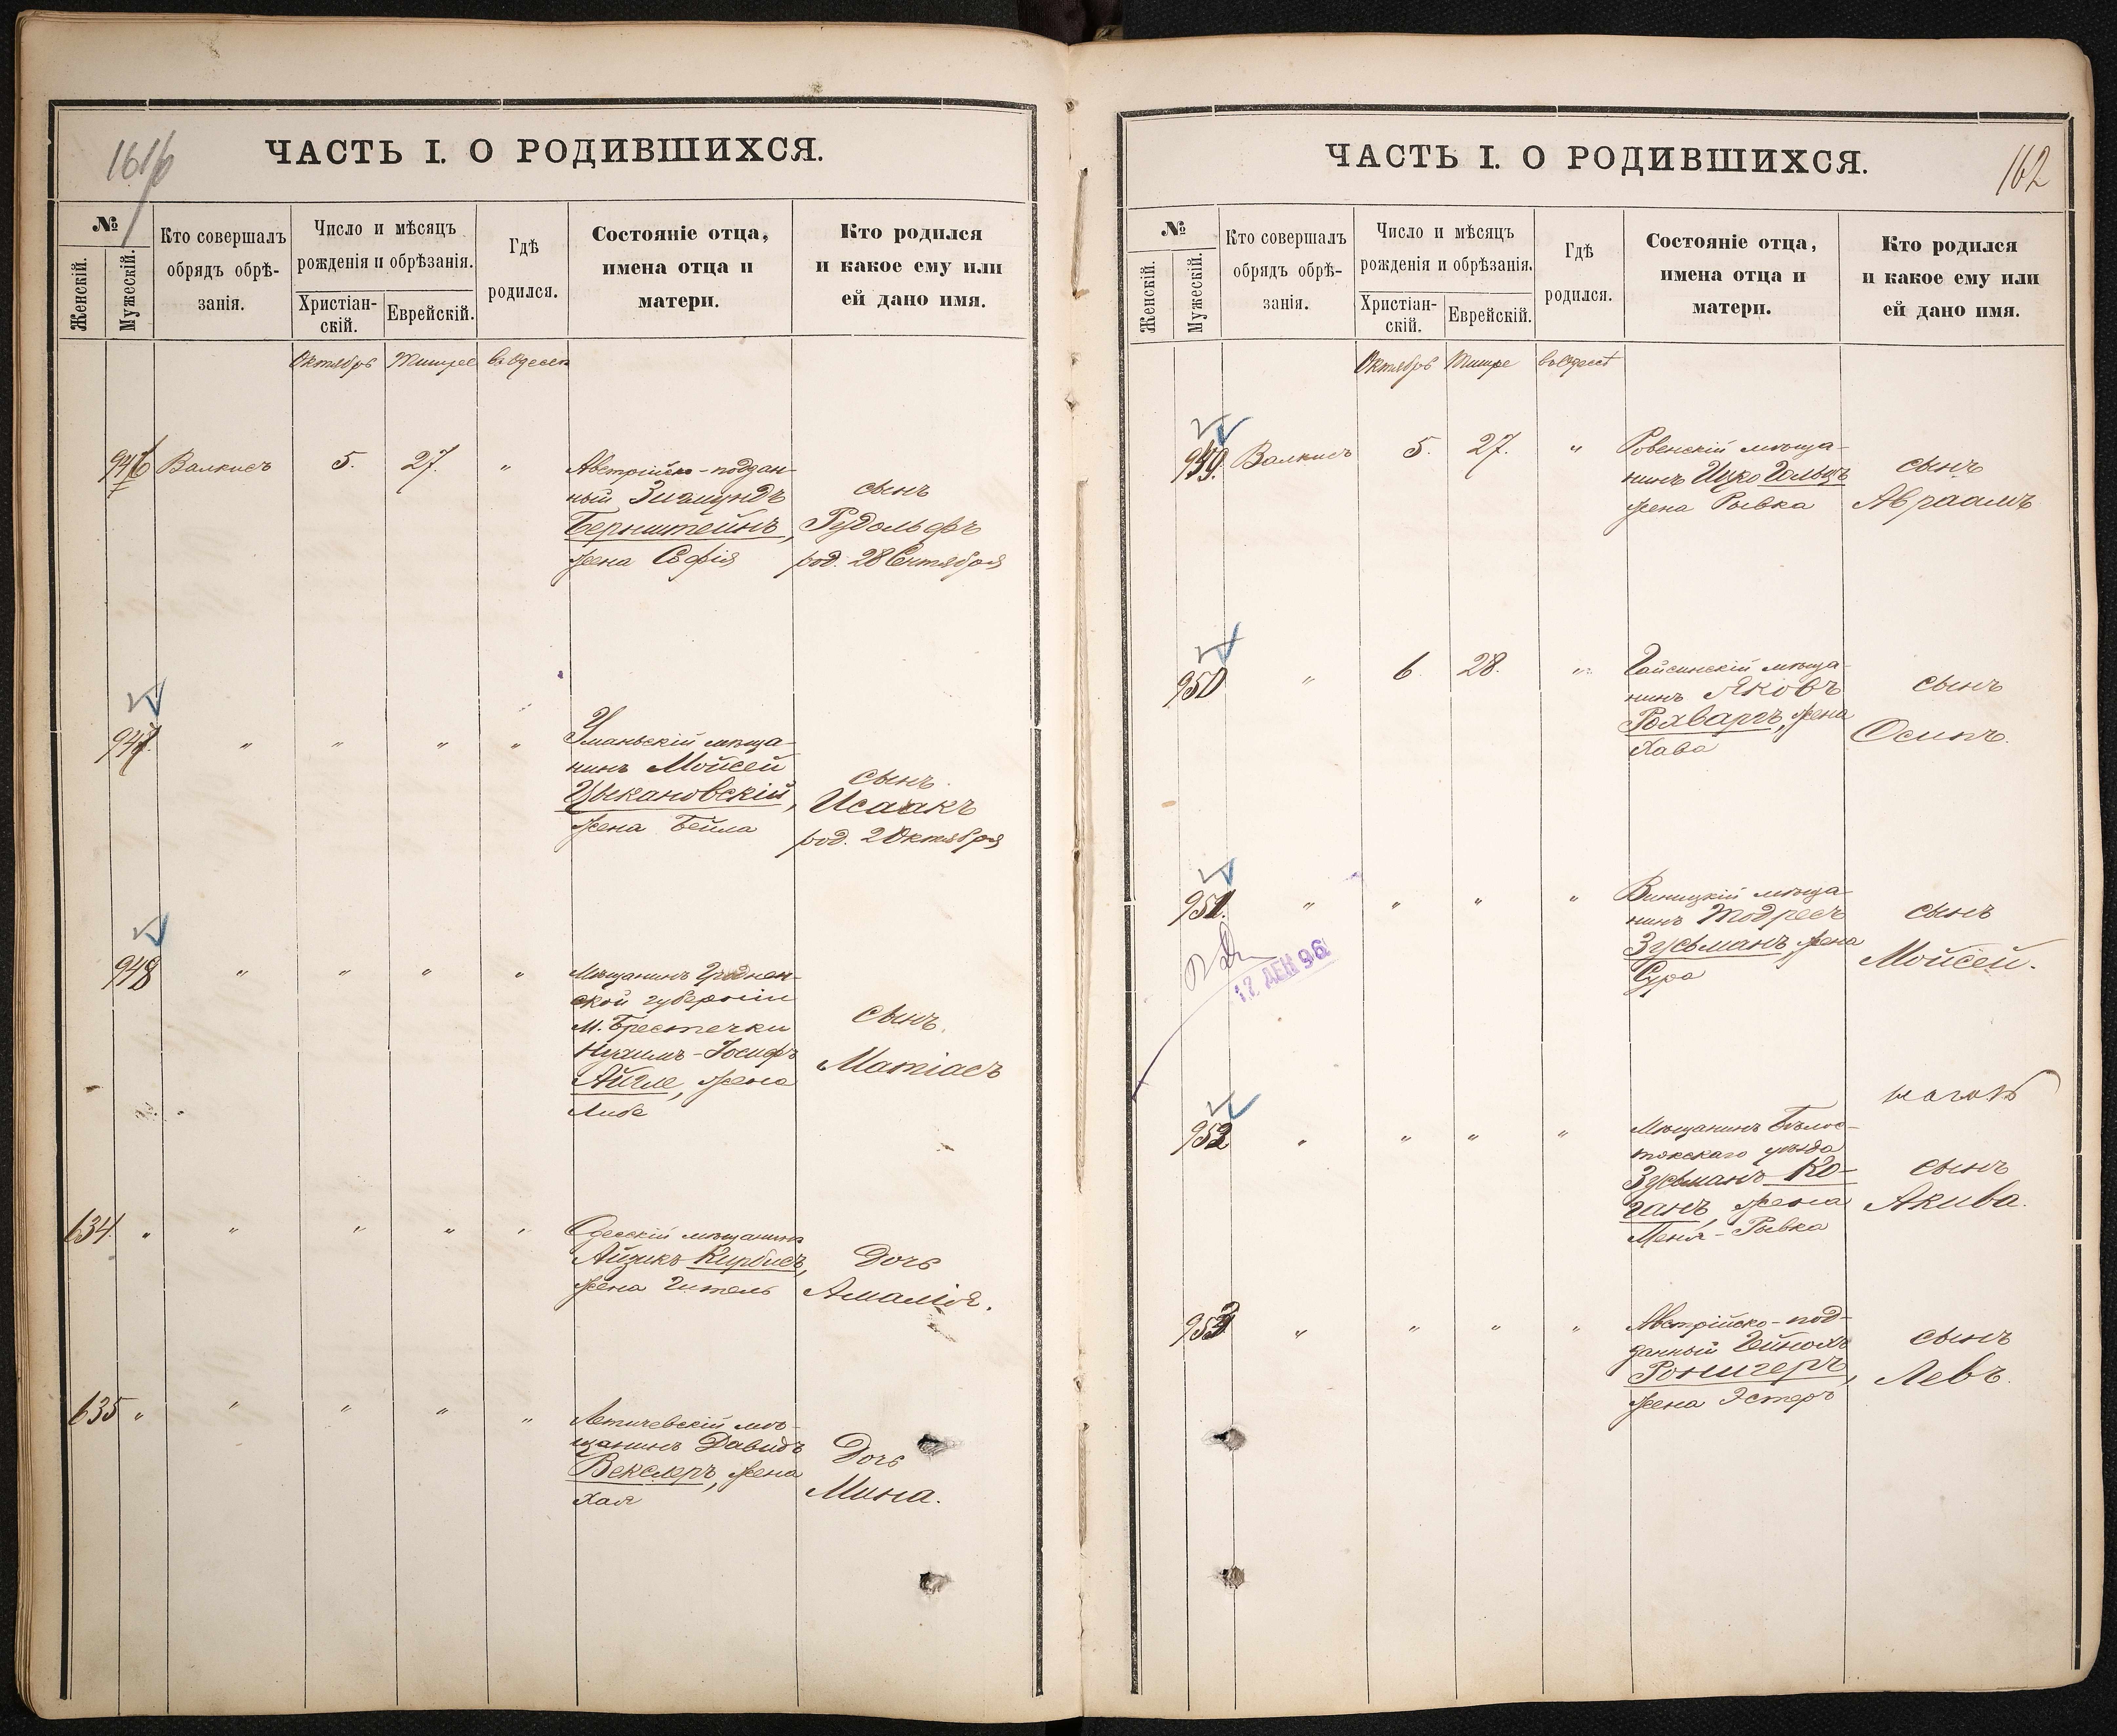 ЧАСТЬ I. О РОДИВШИХСЯ.
№
Женскій.
Мужескій.
Кто совершалъ
обрядъ обрѣ-
занія.
Число и мѣсяцъ
рожденія и обрѣзанія.
Христіан-
скій.
Еврейскій.
Гдѣ
родился.
Состояніе отца,
имена отца и
матери.
Кто родился
и какое ему или
ей дано имя.
Октябрь Тишре въ Одессѣ
946 Валкисъ 5. 27. "
Австрійско-поддан-
ный Зигмундъ
Бернштейнъ,
жена Софія
сынъ
Рудольфъ
род. 28 Сентября
947 " " " "
Уманьскій мѣща-
нинъ Мойсей
Цыкановскій,
жена Бейла
сынъ
Исаакъ
род. 2 Октября
948 " " " "
Мѣщанинъ Гроднен-
ской губерніи
м. Брестечки
Нухимъ-Іосифъ
Айгле, жена
Либа
сынъ
Матіасъ
634. " " " " "
Одесскій мѣщанинъ
Айзикъ Кирбисъ,
жена Гитель
Дочь
Амалія.
635 " " " " "
Летичевскій мѣ-
щанинъ Давидъ
Векслеръ, жена
Хая
Дочь
Мина.
ЧАСТЬ I. О РОДИВШИХСЯ.
162
№
Женскій.
Мужескій.
Кто совершалъ
обрядъ обрѣ-
занія.
Число и мѣсяцъ
рожденія и обрѣзанія.
Христіан-
скій.
Еврейскій.
Гдѣ
родился.
Состояніе отца,
имена отца и
матери.
Кто родился
и какое ему или
ей дано имя.
Октябрь Тишре въ Одессѣ
949. Валкисъ 5. 27. "
Ровенскій мѣща-
нинъ Ицко Гальцъ
жена Рывка
сынъ
Авраамъ
950 " 6. 28. "
Гайсинскій мѣща-
нинъ Яковъ
Рохваргъ, жена
Хава
сынъ
Осипъ.
951. " " " "
Виницкій мѣща-
нинъ Тодресъ
Зусьманъ, жена
Сура
сынъ
Мойсей.
17 ДЕК 96
952 " " " "
Мѣщанинъ Бѣлос-
токскаго уѣзда
Зусьманъ Ко-
ганъ, жена
Меня-Рывка
сынъ
Акива.
953 " " " "
Австрійско-под-
данный Гейнохъ
Ронигеръ,
жена Эстеръ
сынъ
Левъ.